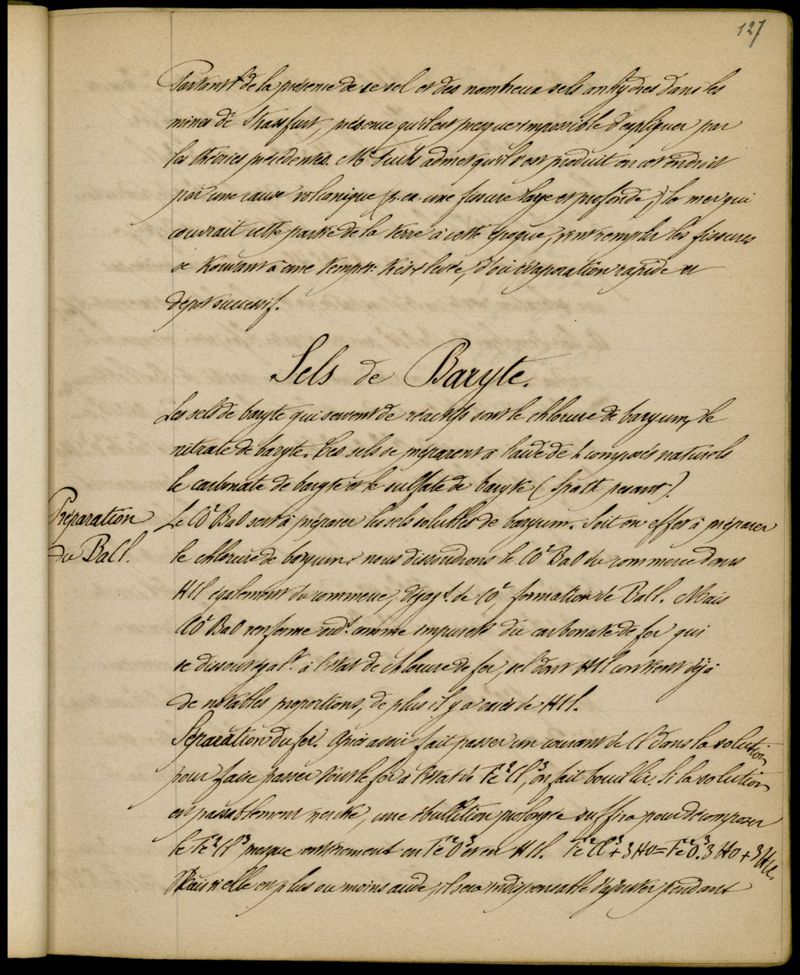 127
Partant de la présence de ce sel et des nombreux sels anhydres dans les
mines de Strassfurt, présence qu'il est presque impossible d'expliquer par
les théories précédentes. Mr Fuchs admet qu'il s'est produit en cet endroit
par une cause volcanique p. ex. une fissure large et profonde, la mer qui
couvrait cette partie de la terre à cette époque, vint remplir les fissures
se trouvant à une tempre. très élevée, d'où évaporation rapide et
dépôt successif.
Sels de Baryte.
Les sels de baryte qui servent de réactifs sont le chlorure de baryum, le
nitrate de baryte. Ces sels se préparent à l'aide de 2 composés naturels
le carbonate de baryte et le sulfate de baryte (spath pesant).
Préparation
du BaCl.
Le CO² BaO sert à préparer les sels solubles de baryum. Soit en effet à préparer
le chlorure de baryum, nous dissoudrons le CO² BaO du commerce dans
HCl également du commerce, dégagt. de CO² formation de BaCl. Mais
CO² BaO renferme ordt. comme impureté du carbonate de fer qui
se dissout égalt. à l'état de chlorure de fer, sel dont HCl contient déjà
de notables proportions, de plus il y a excès de HCl.
Séparation du fer. Après avoir fait passer un courant de Cl dans la solution
pour faire passer tout le fer à l'état de Fe²Cl³, on fait bouillir. Si la solution
est passablement neutre, une ébullition prolongée suffira pour décomposer
le Fe²Cl³ presque entièrement en Fe²O³ et en HCl. Fe²Cl³+3HO=Fe²O³.3HO+3HCl.
Mais si elle est plus ou moins acide, il sera indispensable d'ajouter pendant